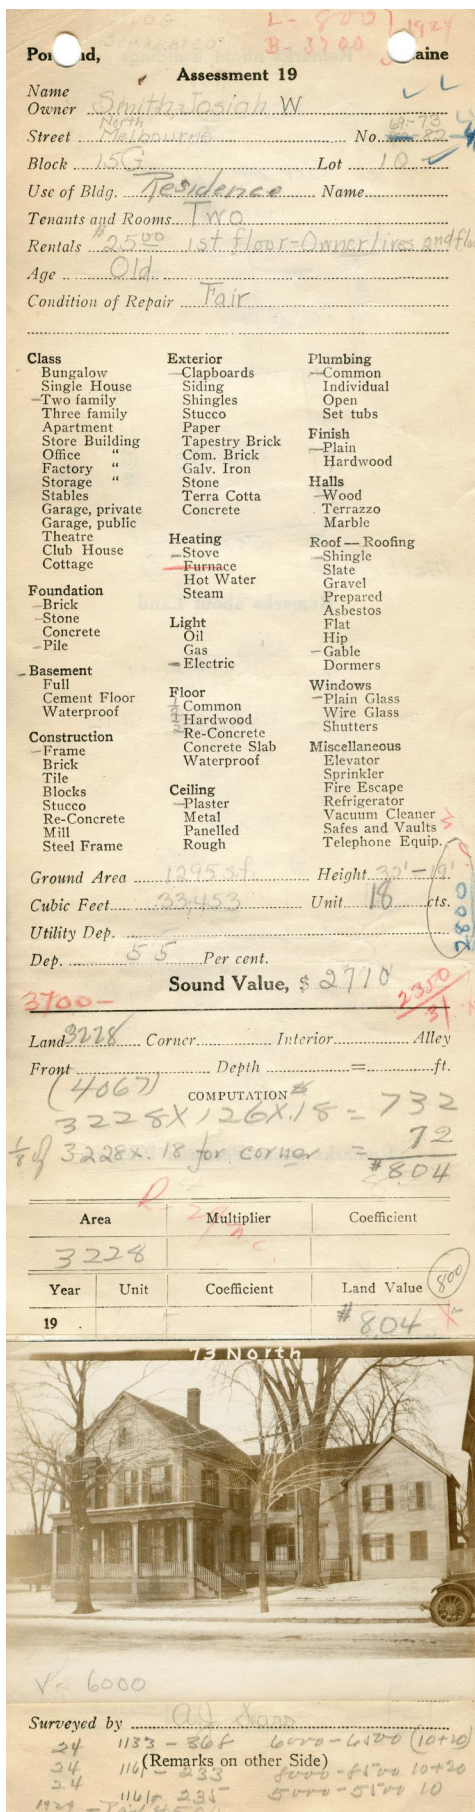 L - 800 } 1924
B - 3700
Assessment 19
Name
Owner Smith, Josiah W
North
Street Melbourne No. 69-73 82
Block 15G Lot 10
Use of Bldg. Residence Name
Tenants and Rooms Two
Rentals $25.00 1st floor - Owner lives 2nd flo
Age Old
Condition of Repair Fair
Class
Bungalow
Single House
Two family
Three family
Apartment
Store Building
Office "
Factory "
Storage "
Stables
Garage, private
Garage, public
Theatre
Club House
Cottage
Foundation
Brick
Stone
Concrete
Pile
Basement
Full
Cement Floor
Waterproof
Construction
Frame
Brick
Tile
Blocks
Stucco
Re-Concrete
Mill
Steel Frame
Exterior
Clapboards
Siding
Shingles
Stucco
Paper
Tapestry Brick
Com. Brick
Galv. Iron
Stone
Terra Cotta
Concrete
Heating
Stove
Furnace
Hot Water
Steam
Light
Oil
Gas
Electric
Floor
1/2 Common
1/2 Hardwood
Re-Concrete
Concrete Slab
Waterproof
Ceiling
Plaster
Metal
Panelled
Rough
Plumbing
Common
Individual
Open
Set tubs
Finish
Plain
Hardwood
Halls
Wood
Terrazzo
Marble
Roof — Roofing
Shingle
Slate
Gravel
Prepared
Asbestos
Flat
Hip
Gable
Dormers
Windows
Plain Glass
Wire Glass
Shutters
Miscellaneous
Elevator
Sprinkler
Fire Escape
Refrigerator
Vacuum Cleaner
Safes and Vaults
Telephone Equip.
Ground Area 1295 s.f. Height 32' - 19'
Cubic Feet 33,453 Unit 18 cts.
2800
Utility Dep.
Dep. 55 Per cent.
Sound Value, $ 2710
3700-
2350
31
Land 3228 Corner Interior Alley
Front Depth = ft.
(4067)
COMPUTATION
3228 X 126 X .18 = 732
1/8 of 3228 X .18 for corner = 72
$804
Area Multiplier Coefficient
3228
Year Unit Coefficient Land Value 800
19 $804
73 North
V- 6000
Surveyed by A.J. Sears
24 1133 - 368 6000 - 6500 (10+20)
(Remarks on other Side)
24 1161 - 233 8000 - 8500 10+20
24 1161 - 235 5000 - 5500 10